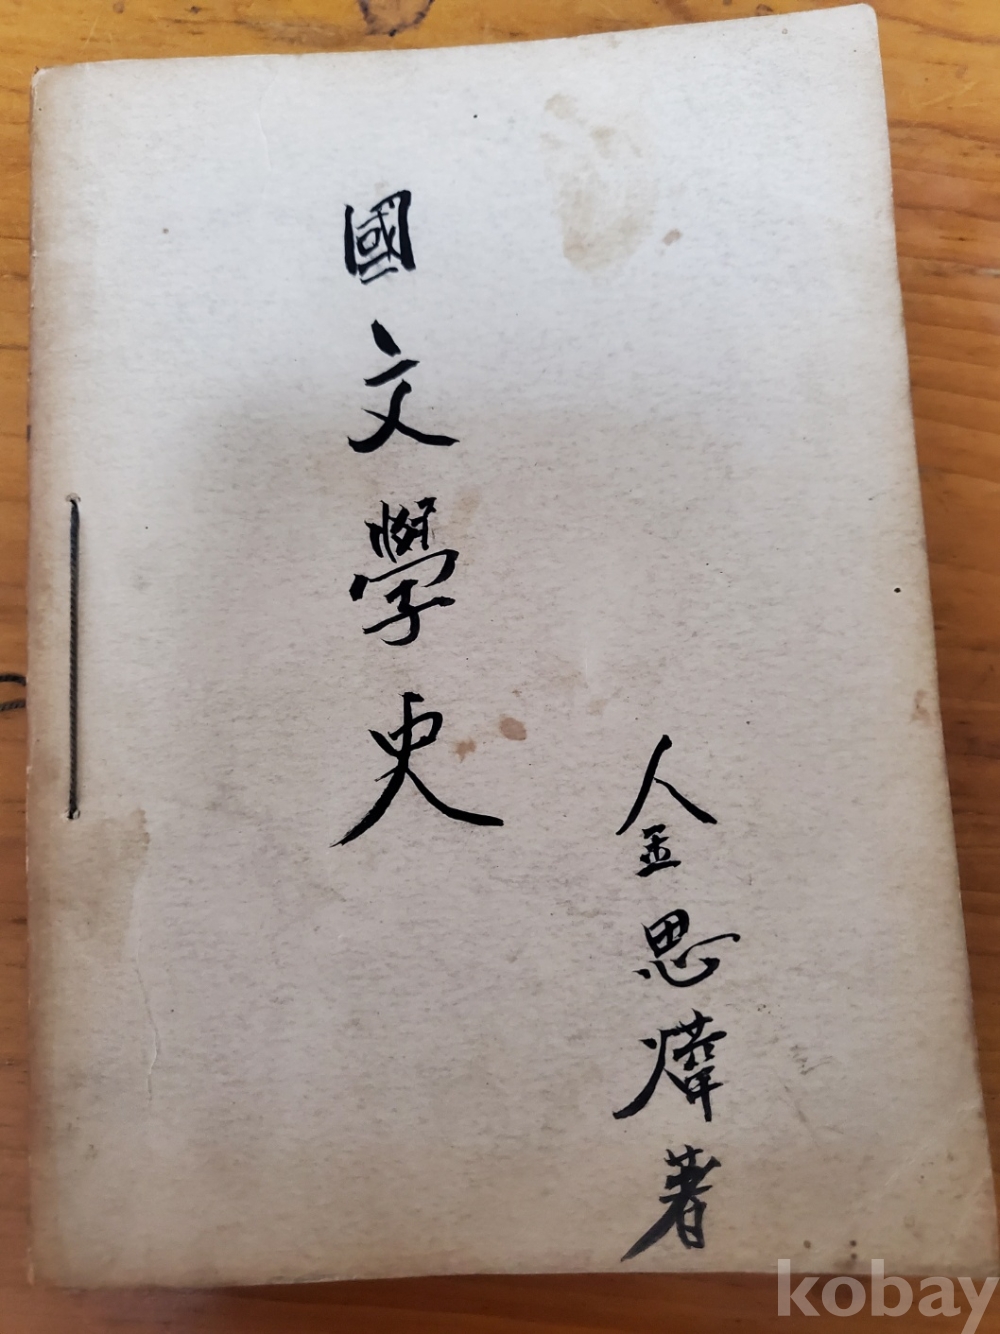 國文學史
金思燁著
kobay